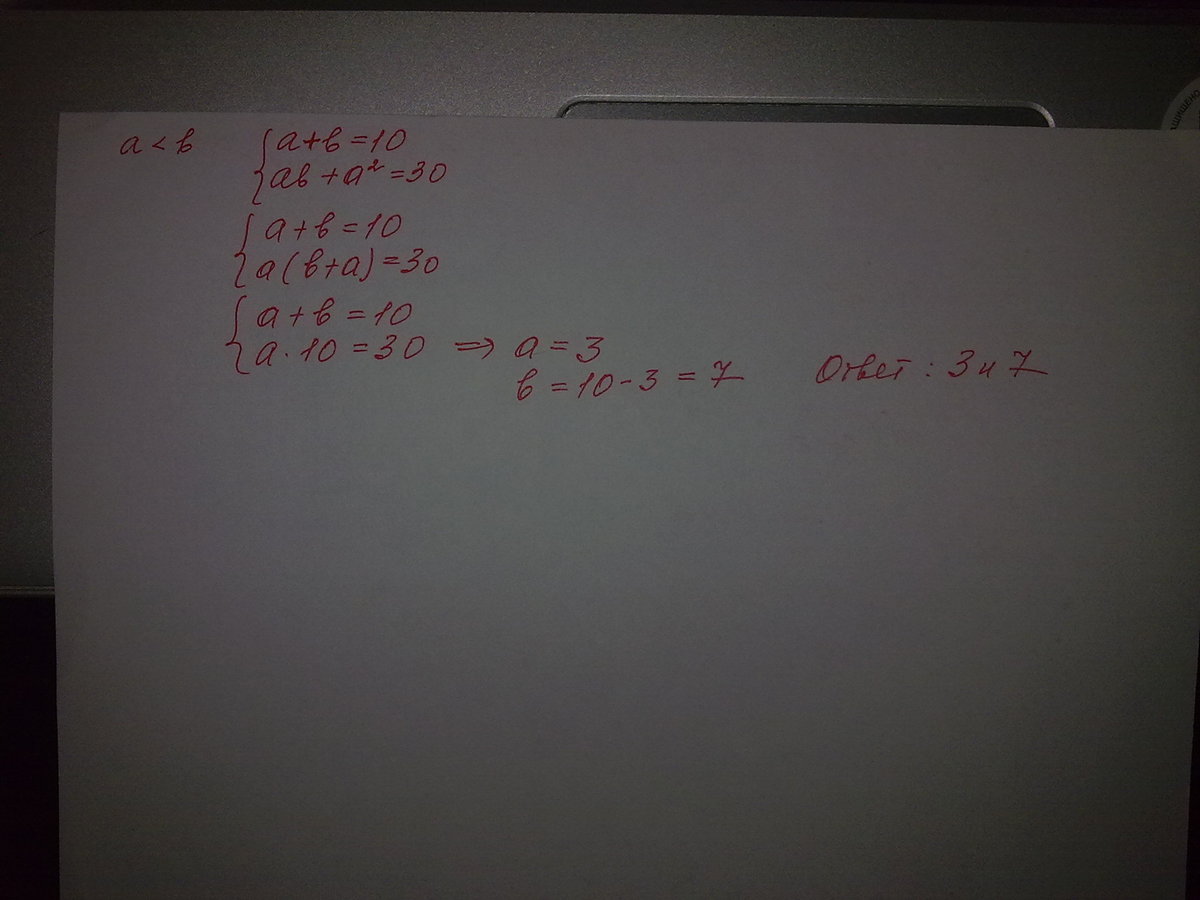 a < в { a + в = 10
{ aв + a² = 30
{ a + в = 10
{ a (в + a) = 30
{ a + в = 10
{ a · 10 = 30 ⇒ a = 3
в = 10 - 3 = 7 Ответ : 3 и 7